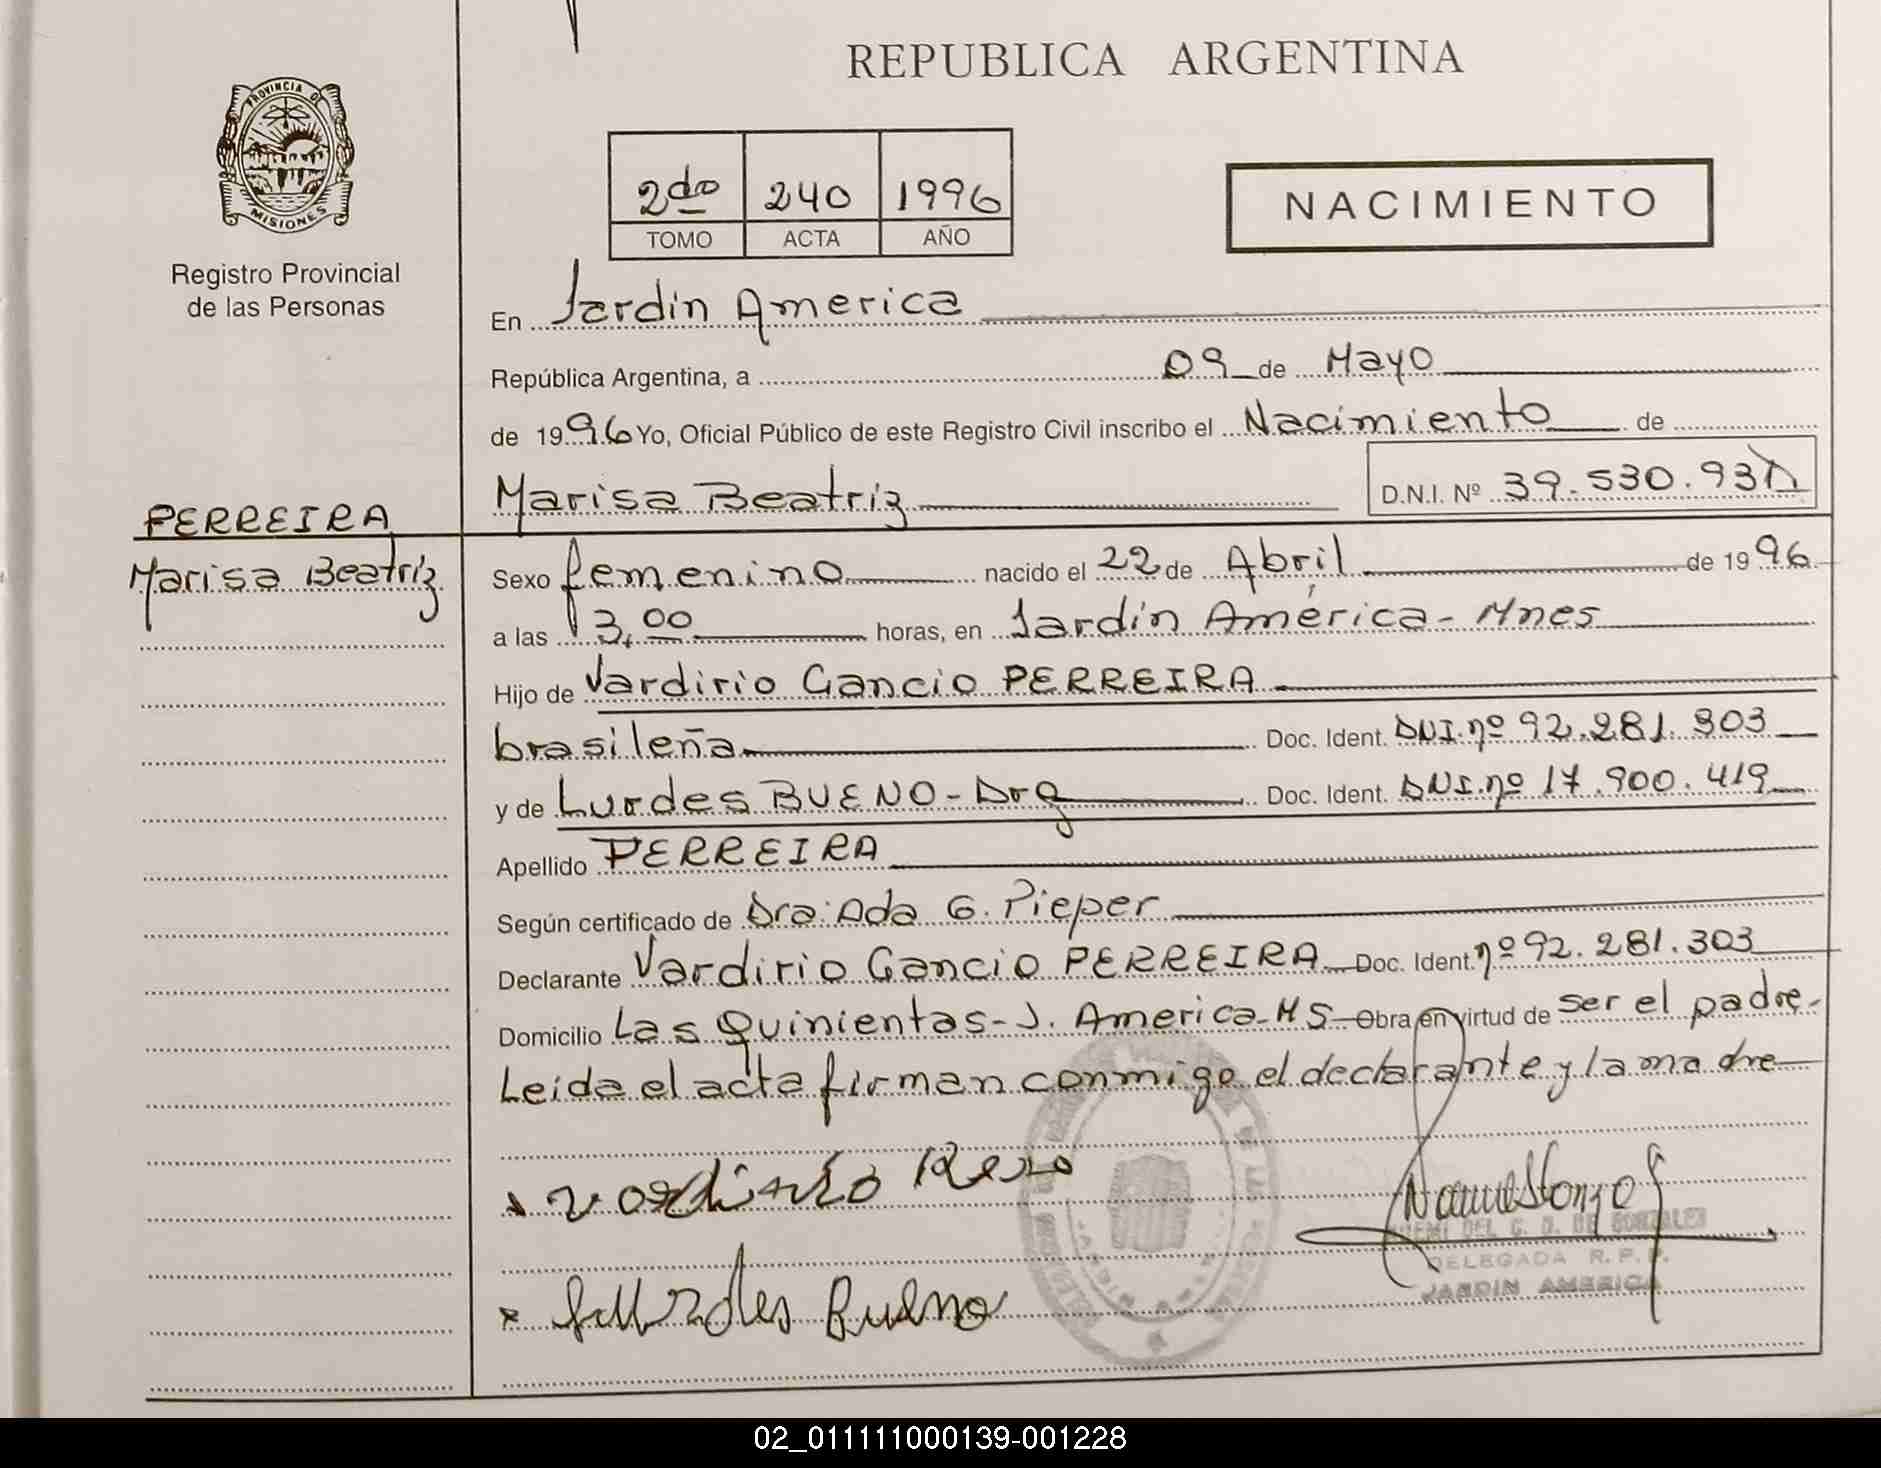 REPUBLICA ARGENTINA
PROVINCIA DE
MISIONES
Registro Provincial
de las Personas
2do 240 1996
TOMO ACTA AÑO
NACIMIENTO
En Jardin America
República Argentina, a 09 de Mayo
de 1996 Yo, Oficial Público de este Registro Civil inscribo el Nacimiento de
Marisa Beatriz D.N.I. Nº 39.530.93
PERREIRA
Marisa Beatriz
Sexo femenino nacido el 22 de Abril de 1996
a las 13,00 horas, en Jardin América - Mnes
Hijo de Vardirio Gancio PERREIRA
brasileña Doc. Ident. DNI.nº 92.281.303
y de Lurdes BUENO - Arg Doc. Ident. DNI.nº 17.900.419
Apellido PERREIRA
Según certificado de Dra: Ada G. Pieper
Declarante Vardirio Gancio PERREIRA Doc. Ident. nº 92.281.303
Domicilio Las Quinientas - J. America - MS Obra en virtud de ser el padre.
Leida el acta firman conmigo el declarante y la madre
DEL C. D. DE GONZALEZ
DELEGADA R.P.P.
JARDIN AMERICA
Bueno
02_011111000139-001228